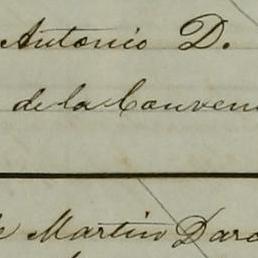 Antonio D.
de la Conven
Martin Dara